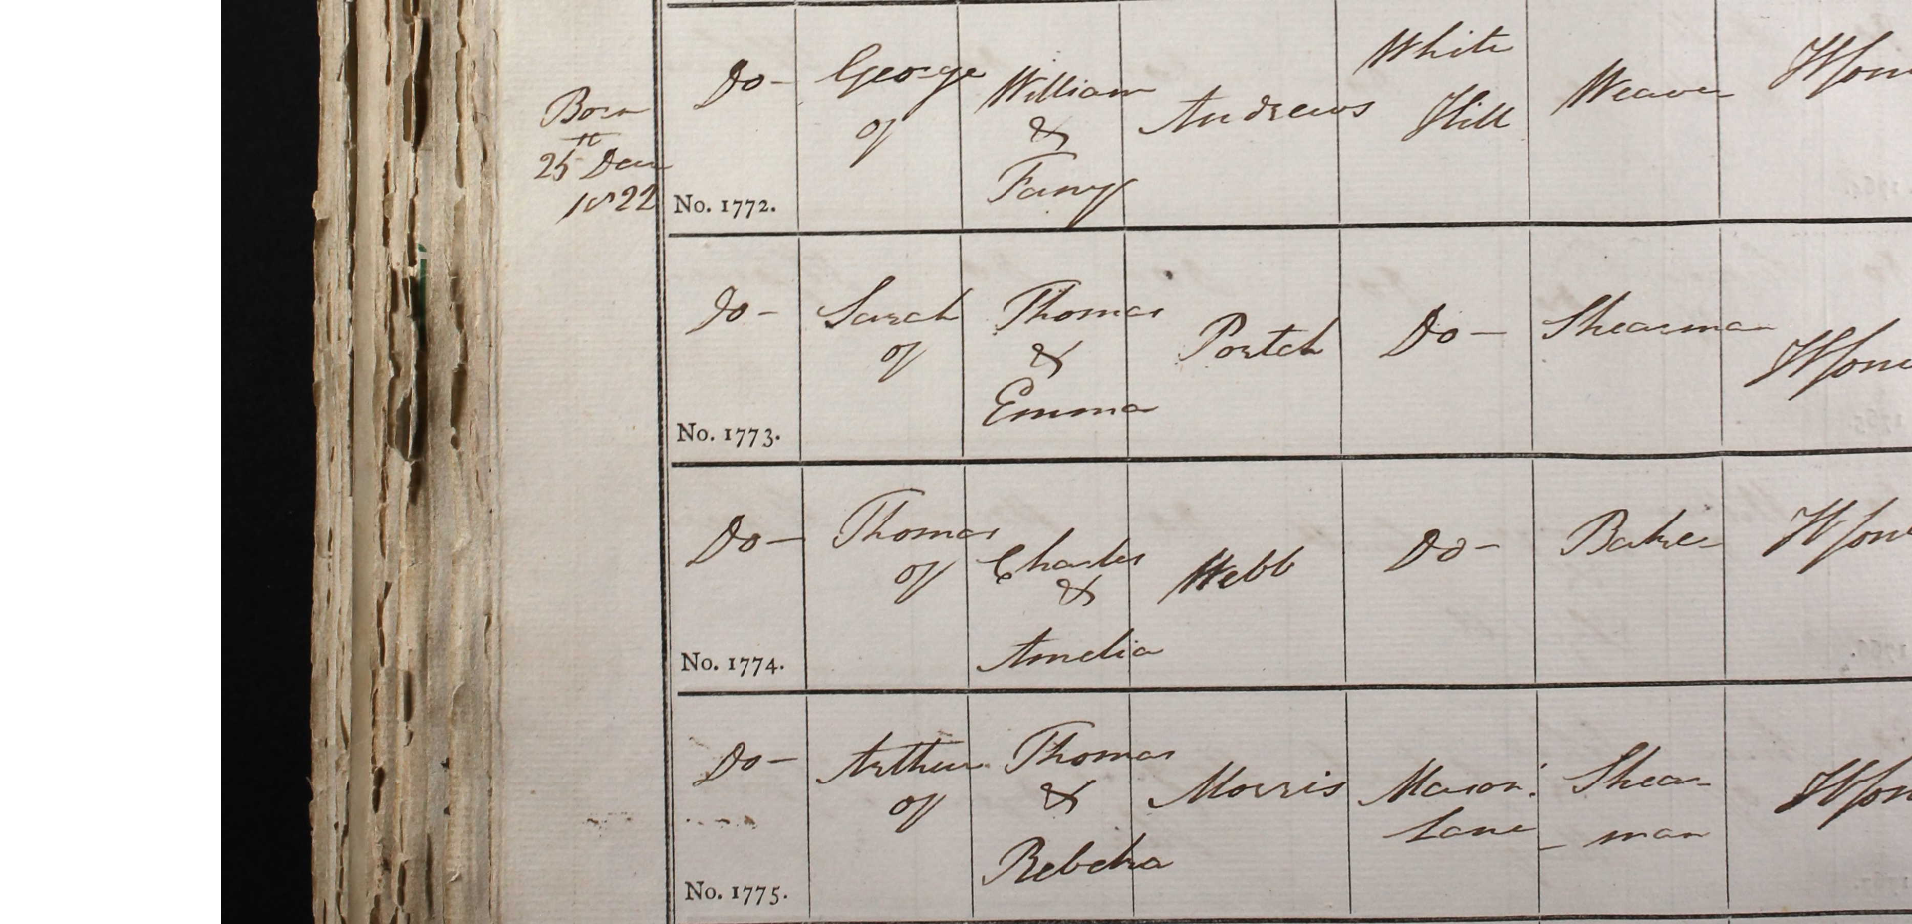 Born
th
25 Decr
1822
Do-
No. 1772.
George
of
William
&
Fanny
Andrews
White
Hill
Weaver
Do-
No. 1773.
Sarah
of
Thomas
&
Emma
Portch
Do-
Shearman
Do-
No. 1774.
Thomas
of
Charles
&
Amelia
Webb
Do-
Baker
Do-
No. 1775.
Arthur
of
Thomas
&
Rebeka
Morris
Mason's
Lane
Shear
- man